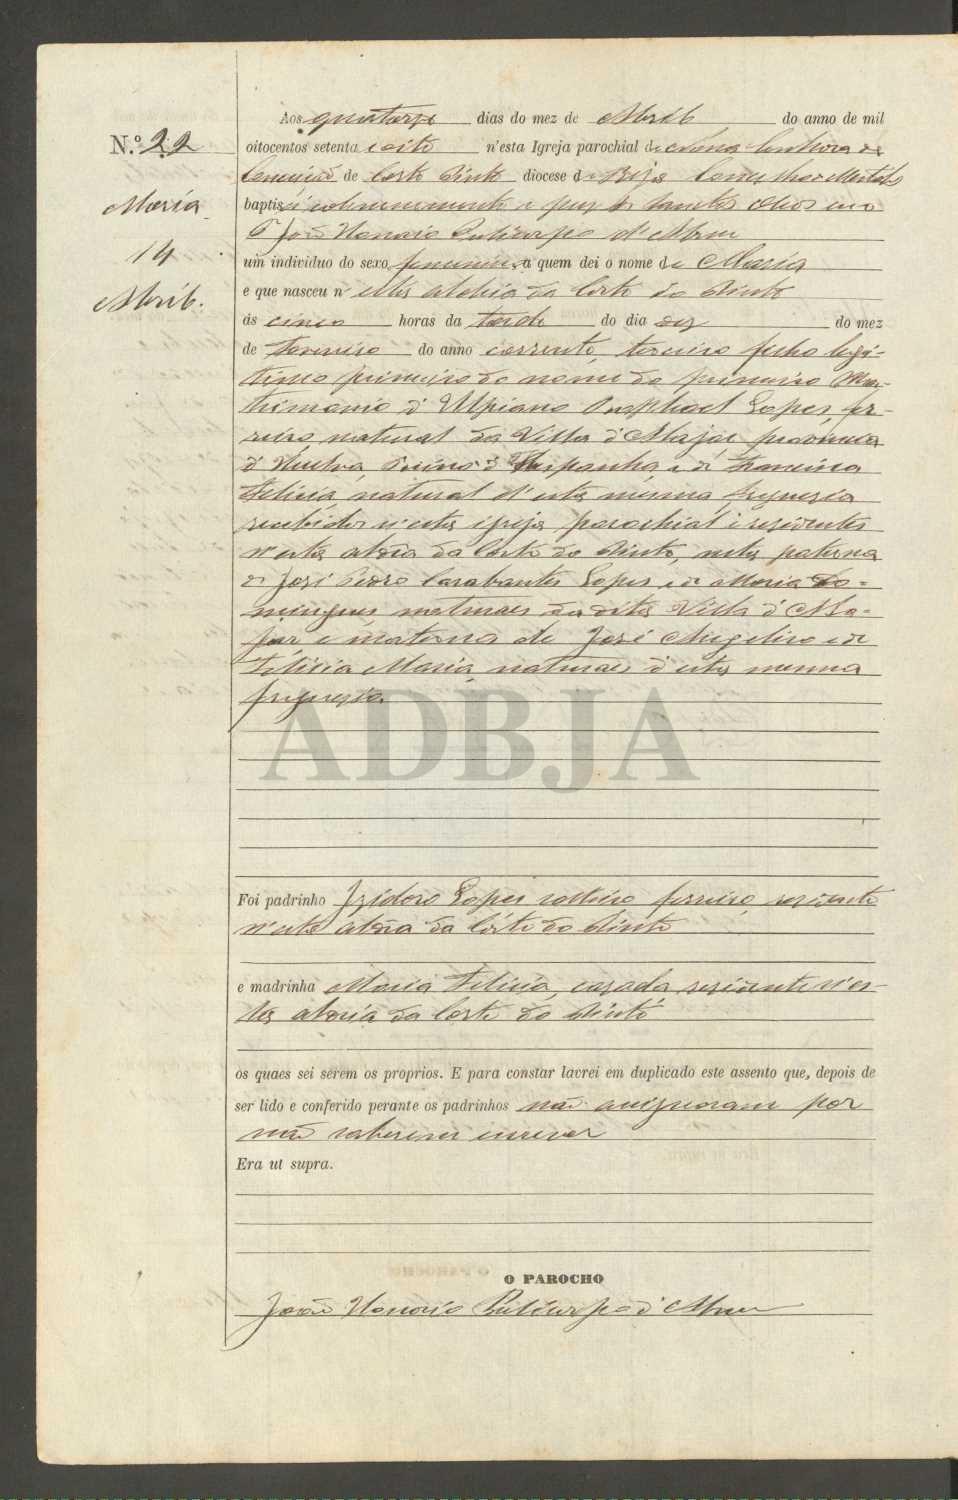 N.º 22
Maria
14
Abril.
Aos quatorze dias do mez de Abril do anno de mil
oitocentos setenta e oito n'esta Igreja parochial de Nossa Senhora da
Conceição de Corte Pinto diocese de Beja Concelho de Mertola
baptisei solemnemente e puz os Santos Oleos eu o
P.e João Honorio Policarpo d'Abreu
um individuo do sexo feminino a quem dei o nome de Maria
e que nasceu n'esta aldeia da Corte do Pinto
ás cinco horas da tarde do dia dez do mez
de Fevereiro do anno corrente, terceiro filho legi-
timo primeiro do nome do primeiro Ma-
trimonio d'Ulpiano Raphael Lopes, fer-
reiro natural da Villa d' provincia
d'Huelva Reino d'Hespanha, e de Francisca
Felicia, natural d'esta mesma freguesia
recebidos n'esta igreja parochial e residentes
n'esta aldeia da Corte do Pinto, neta paterna
de José Pedro Carabantes Lopes e de Maria Do-
mingues naturaes da dita Villa d'
e materna de José Angelino e de
Felicia Maria, naturaes d'esta mesma
freguesia.
ADBJA
Foi padrinho Izidoro Lopes solteiro ferreiro, residente
n'esta aldeia da Côrte do Pinto
e madrinha Maria Felicia, casada residente n'es-
ta aldeia da Corte do Pinto
os quaes sei serem os proprios. E para constar lavrei em duplicado este assento que, depois de
ser lido e conferido perante os padrinhos não assignaram por
não saberem escrever
Era ut supra.
O PAROCHO
João Honorio Policarpo d'Abreu